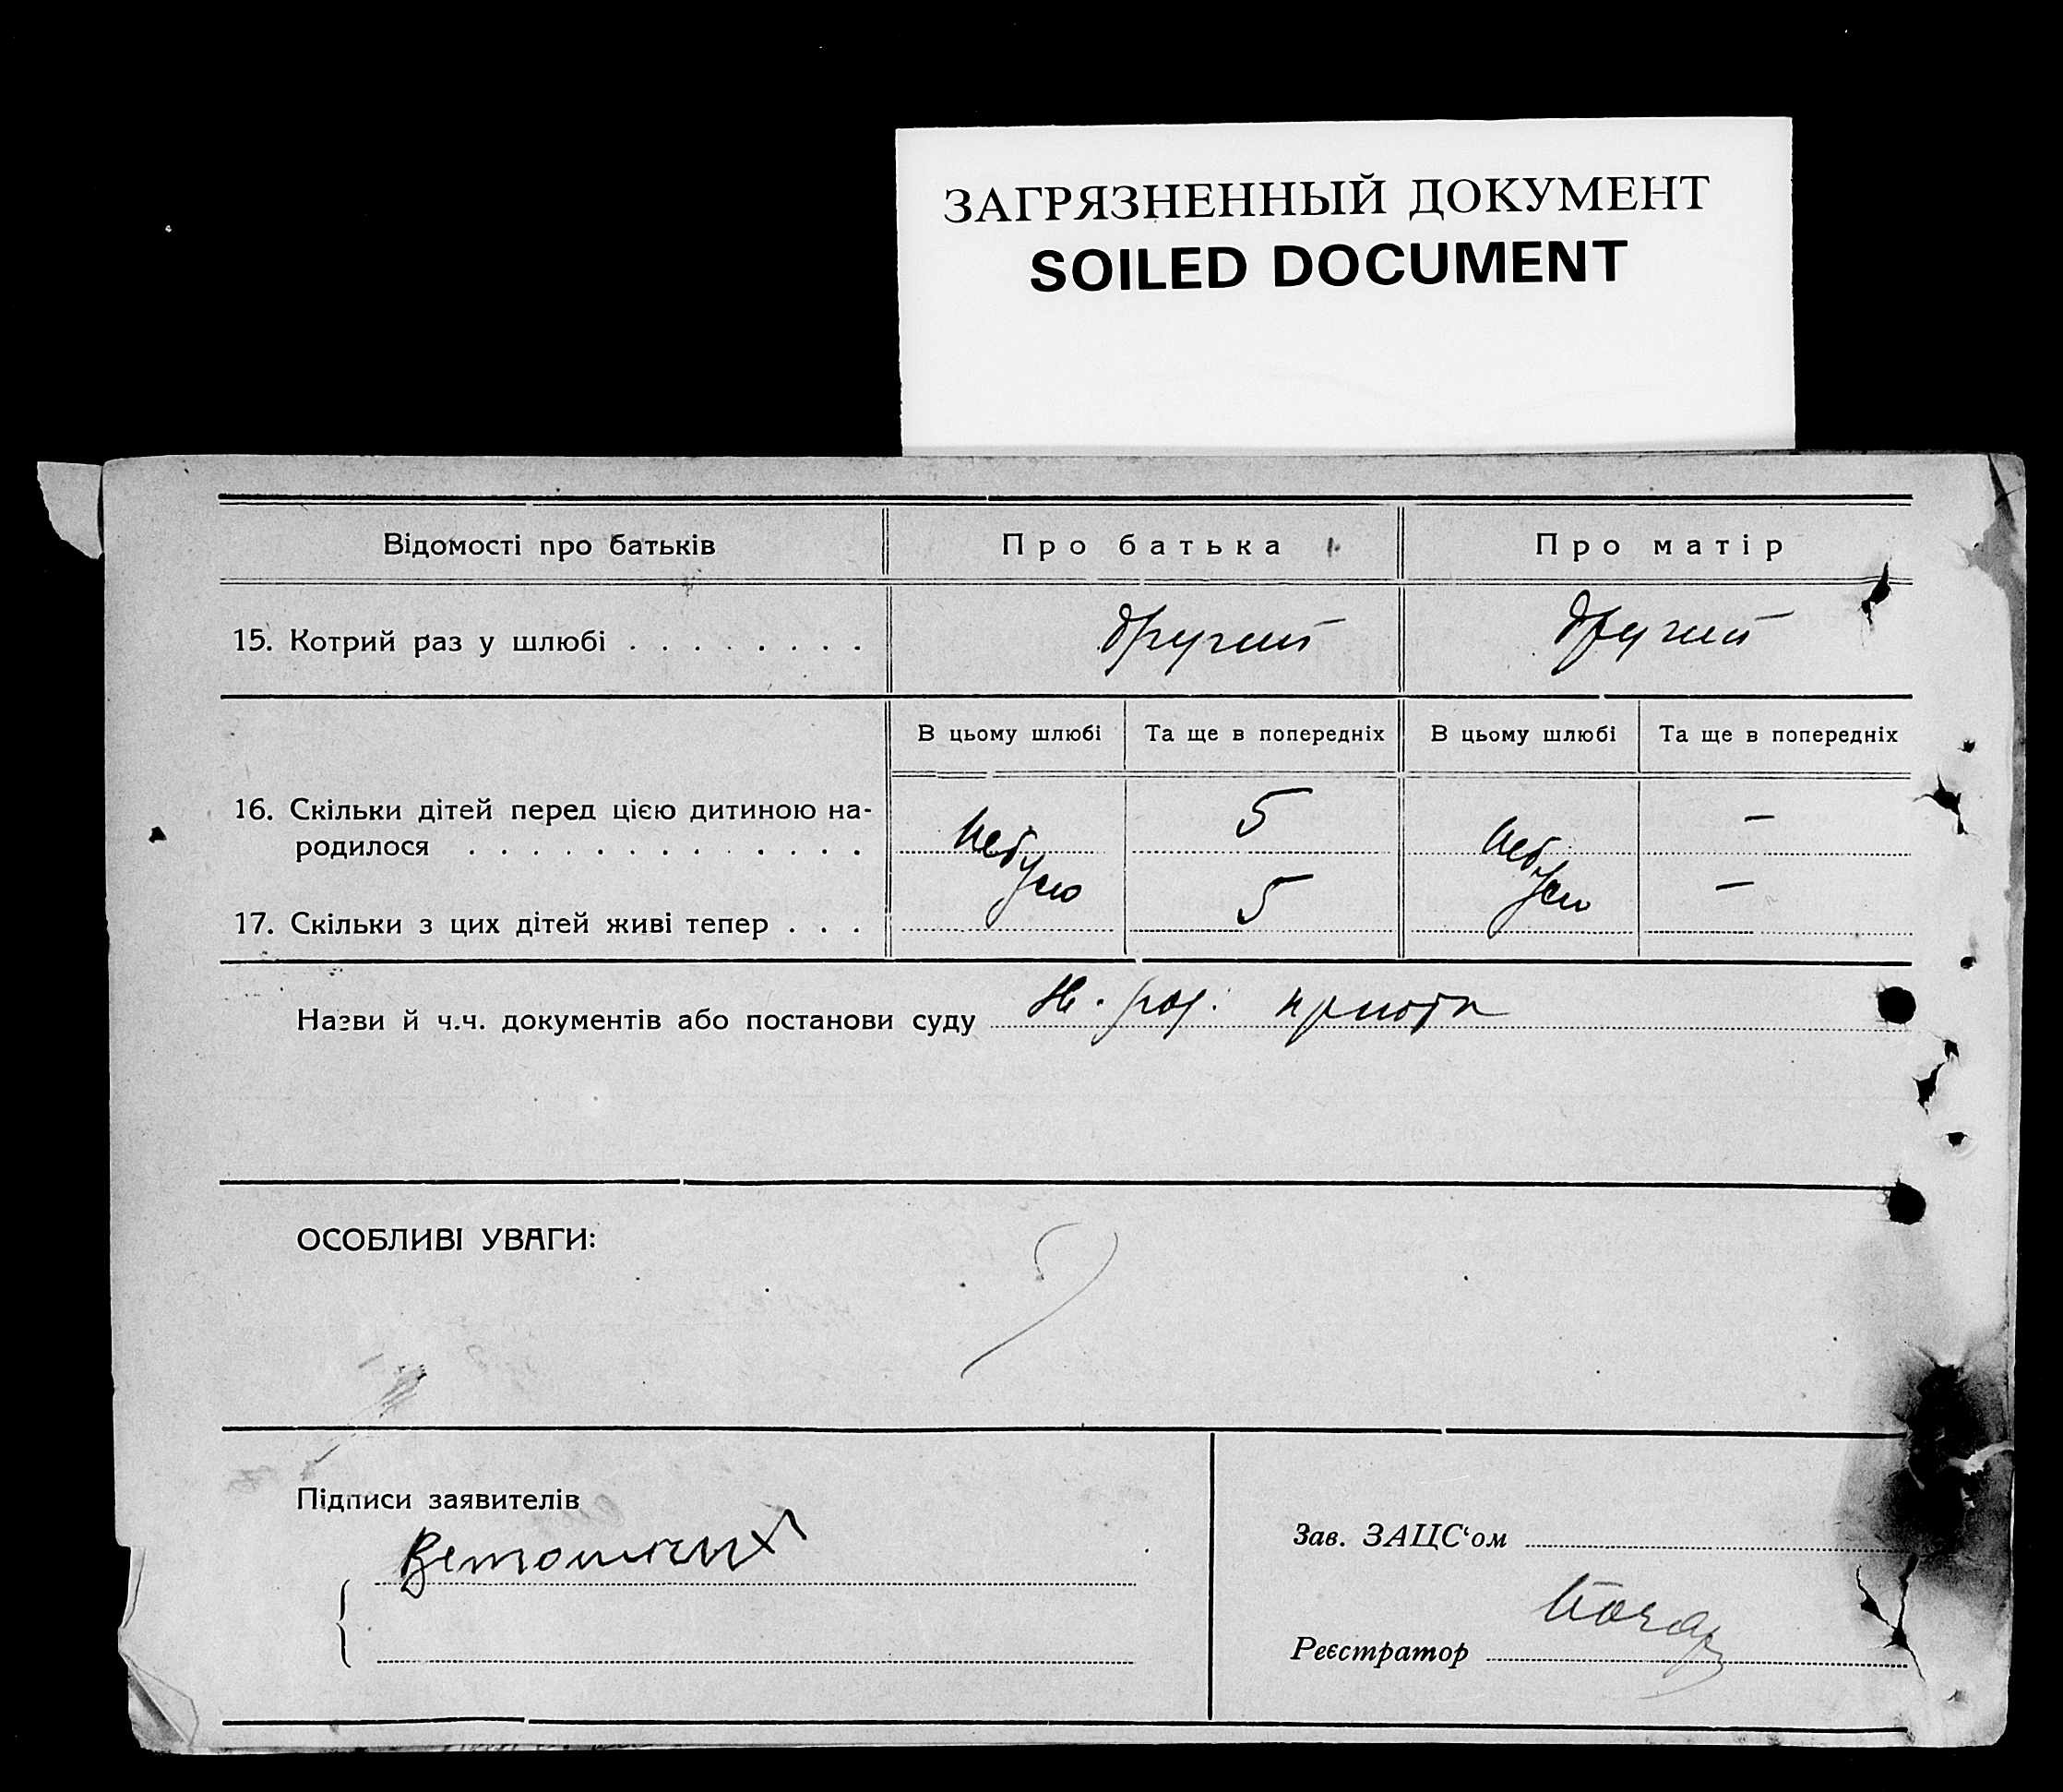 ЗАГРЯЗНЕННЫЙ ДОКУМЕНТ
SOILED DOCUMENT
Відомості про батьків
Про батька
Про матір
15. Котрий раз у шлюбі . . . . . . . .
другий
другий
В цьому шлюбі
Та ще в попередніх
В цьому шлюбі
Та ще в попередніх
16. Скільки дітей перед цією дитиною на-
родилося . . . . . . . . . . . . . .
небуло
5
небуло
–
17. Скільки з цих дітей живі тепер . . .
5
–
Назви й ч.ч. документів або постанови суду
ОСОБЛИВІ УВАГИ:
Підписи заявителів
Зав. ЗАЦС‘ом
Реєстратор